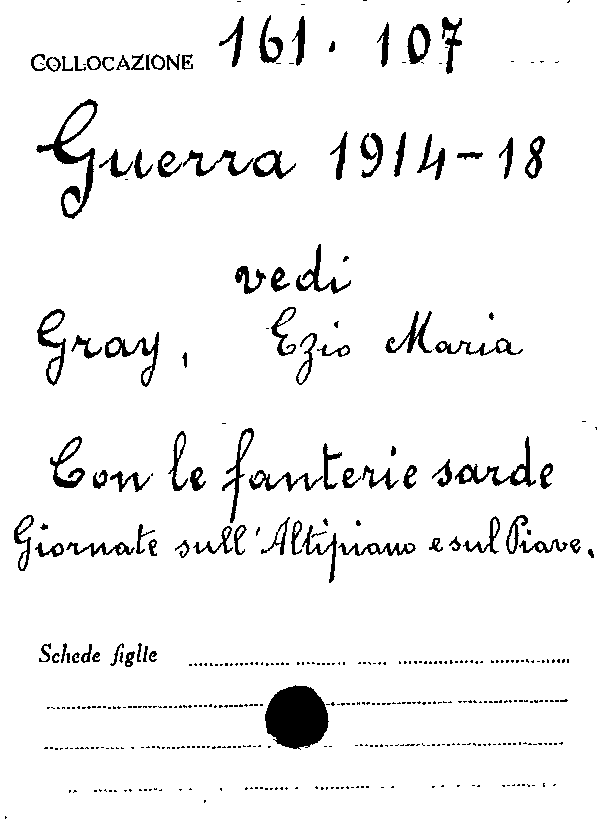 COLLOCAZIONE 161.107
Guerra 1914-18
vedi
Gray, Ezio Maria
Con le fanterie sarde
Giornate sull'Altipiano e sul Piave.
Schede figlie